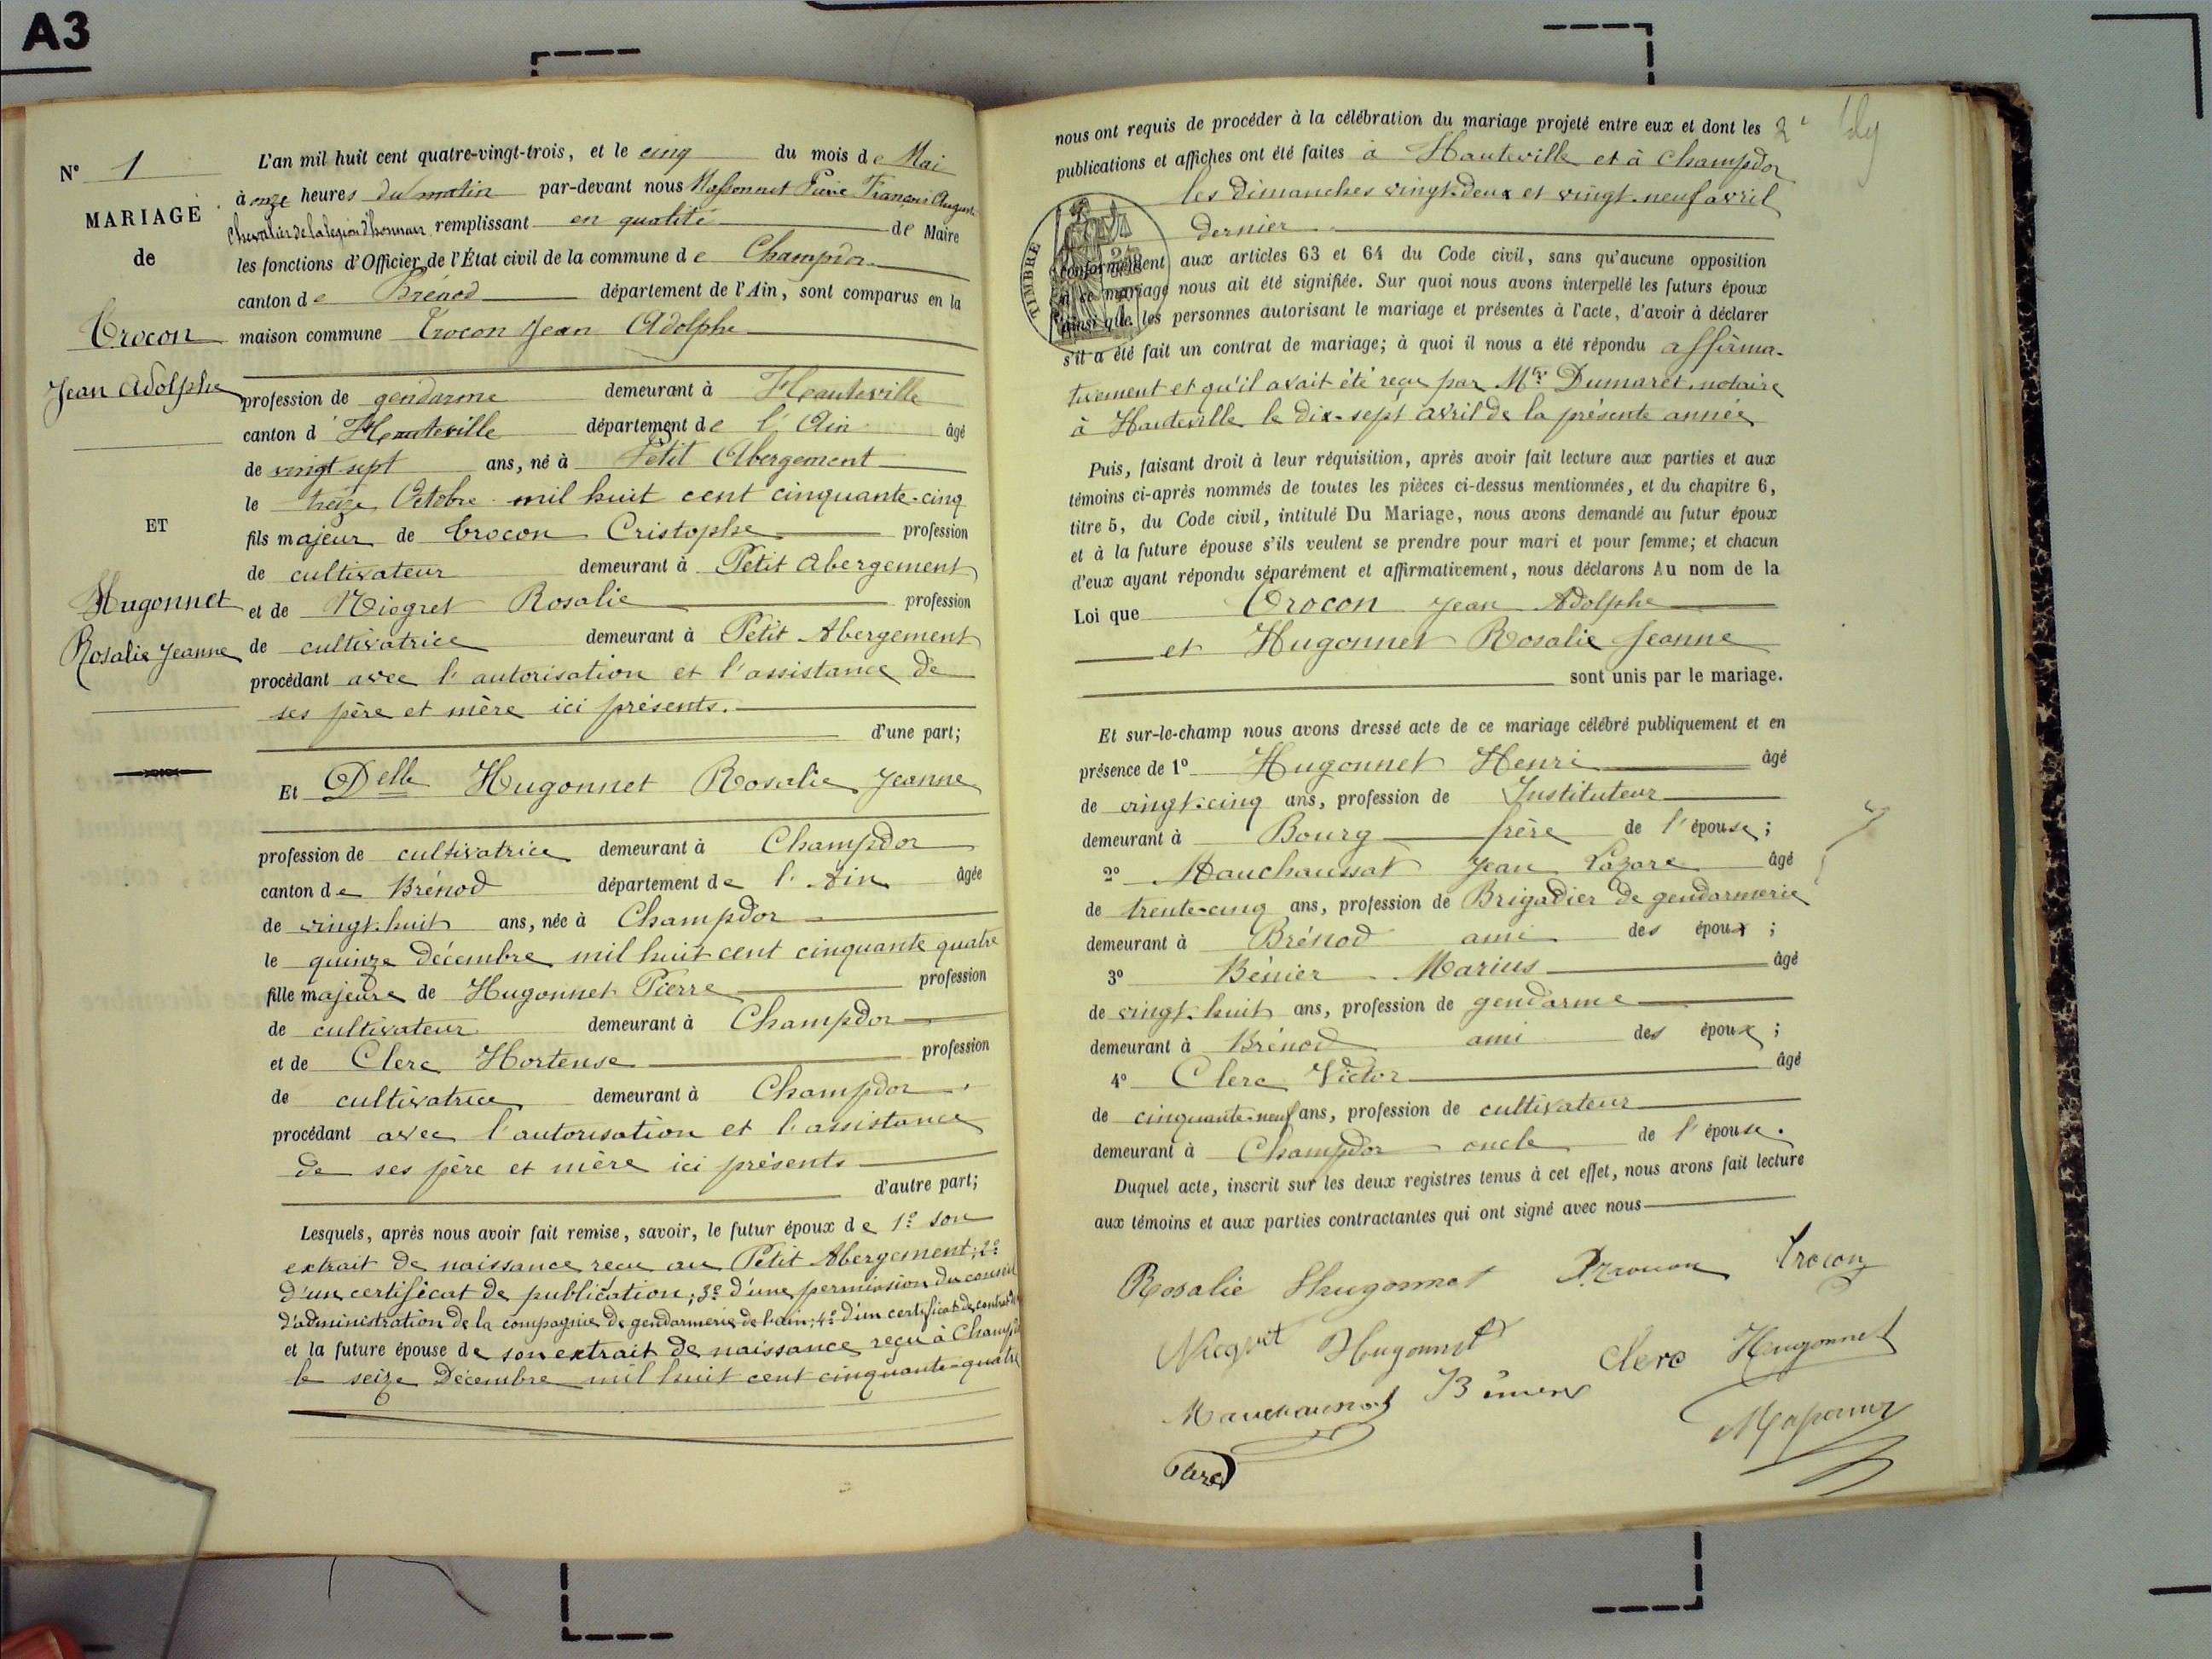 A3
N° 1
MARIAGE
de
Trocon
Jean Adolphe
ET
Hugonnet
Rosalie Jeanne
L'an mil huit cent quatre-vingt-trois, et le cinq du mois de Mai
à onze heures du matin par-devant nous Massonnet Pierre François August.
Chevalier de la legion d'honneur remplissant en qualité de Maire
les fonctions d'Officier de l'État civil de la commune de Champdor
canton de Brénod département de l'Ain, sont comparus en la
maison commune Trocon Jean Adolphe
profession de gendarme demeurant à Hauteville
canton d' Hauteville département de l'Ain âgé
de vingt-sept ans, né à Petit Abergement
le treize Octobre mil huit cent cinquante-cinq
fils majeur de Trocon Cristophe profession
de cultivateur demeurant à Petit Abergement
et de Niogret Rosalie profession
de cultivatrice demeurant à Petit Abergement
procédant avec l'autorisation et l'assistance de
ses père et mère ici présents.
d'une part;
Et Delle Hugonnet Rosalie Jeanne
profession de cultivatrice demeurant à Champdor
canton de Brénod département de l'Ain âgée
de vingt-huit ans, née à Champdor
le quinze décembre mil huit cent cinquante quatre
fille majeure de Hugonnet Pierre profession
de cultivateur demeurant à Champdor
et de Clerc Hortense profession
de cultivatrice demeurant à Champdor
procédant avec l'autorisation et l'assistance
de ses père et mère ici présents
d'autre part;
Lesquels, après nous avoir fait remise, savoir, le futur époux de 1° son
extrait de naissance reçu au Petit Abergement; 2°
d'un certificat de publication; 3° d'une permission du conseil
d'administration de la compagnie de gendarmerie de l'ain; 4° d'un certificat de contrat
et la future épouse de son extrait de naissance reçu à Champdor
le seize Décembre mil huit cent cinquante-quatre
nous ont requis de procéder à la célébration du mariage projeté entre eux et dont les 2
publications et affiches ont été faites à Hauteville et à Champdor
les dimanches vingt-deux et vingt-neuf avril
dernier
TIMBRE
conformément aux articles 63 et 64 du Code civil, sans qu'aucune opposition
à ce mariage nous ait été signifiée. Sur quoi nous avons interpellé les futurs époux
ainsi que les personnes autorisant le mariage et présentes à l'acte, d'avoir à déclarer
s'il a été fait un contrat de mariage; à quoi il nous a été répondu affirma-
tivement et qu'il avait été reçu par Mtre Dumaret, notaire
à Hauteville le dix-sept avril de la présente année
Puis, faisant droit à leur réquisition, après avoir fait lecture aux parties et aux
témoins ci-après nommés de toutes les pièces ci-dessus mentionnées, et du chapitre 6,
titre 5, du Code civil, intitulé Du Mariage, nous avons demandé au futur époux
et à la future épouse s'ils veulent se prendre pour mari et pour femme; et chacun
d'eux ayant répondu séparément et affirmativement, nous déclarons Au nom de la
Loi que Trocon Jean Adolphe
et Hugonnet Rosalie Jeanne
sont unis par le mariage.
Et sur-le-champ nous avons dressé acte de ce mariage célébré publiquement et en
présence de 1° Hugonnet Henri âgé
de vingt-cinq ans, profession de Instituteur
demeurant à Bourg frère de l'épouse;
2° Mauchaussat Jean Lazare âgé
de trente-cinq ans, profession de Brigadier de gendarmerie
demeurant à Brénod ami des époux;
3° Bénier Marius âgé
de vingt-huit ans, profession de gendarme
demeurant à Brénod ami des époux;
4° Clerc Victor âgé
de cinquante-neuf ans, profession de cultivateur
demeurant à Champdor oncle de l'épouse.
Duquel acte, inscrit sur les deux registres tenus à cet effet, nous avons fait lecture
aux témoins et aux parties contractantes qui ont signé avec nous
Rosalie Hugonnet Trocon
Hugonnet Clerc Hugonnet
Mauchaussat Bénier
Clerc